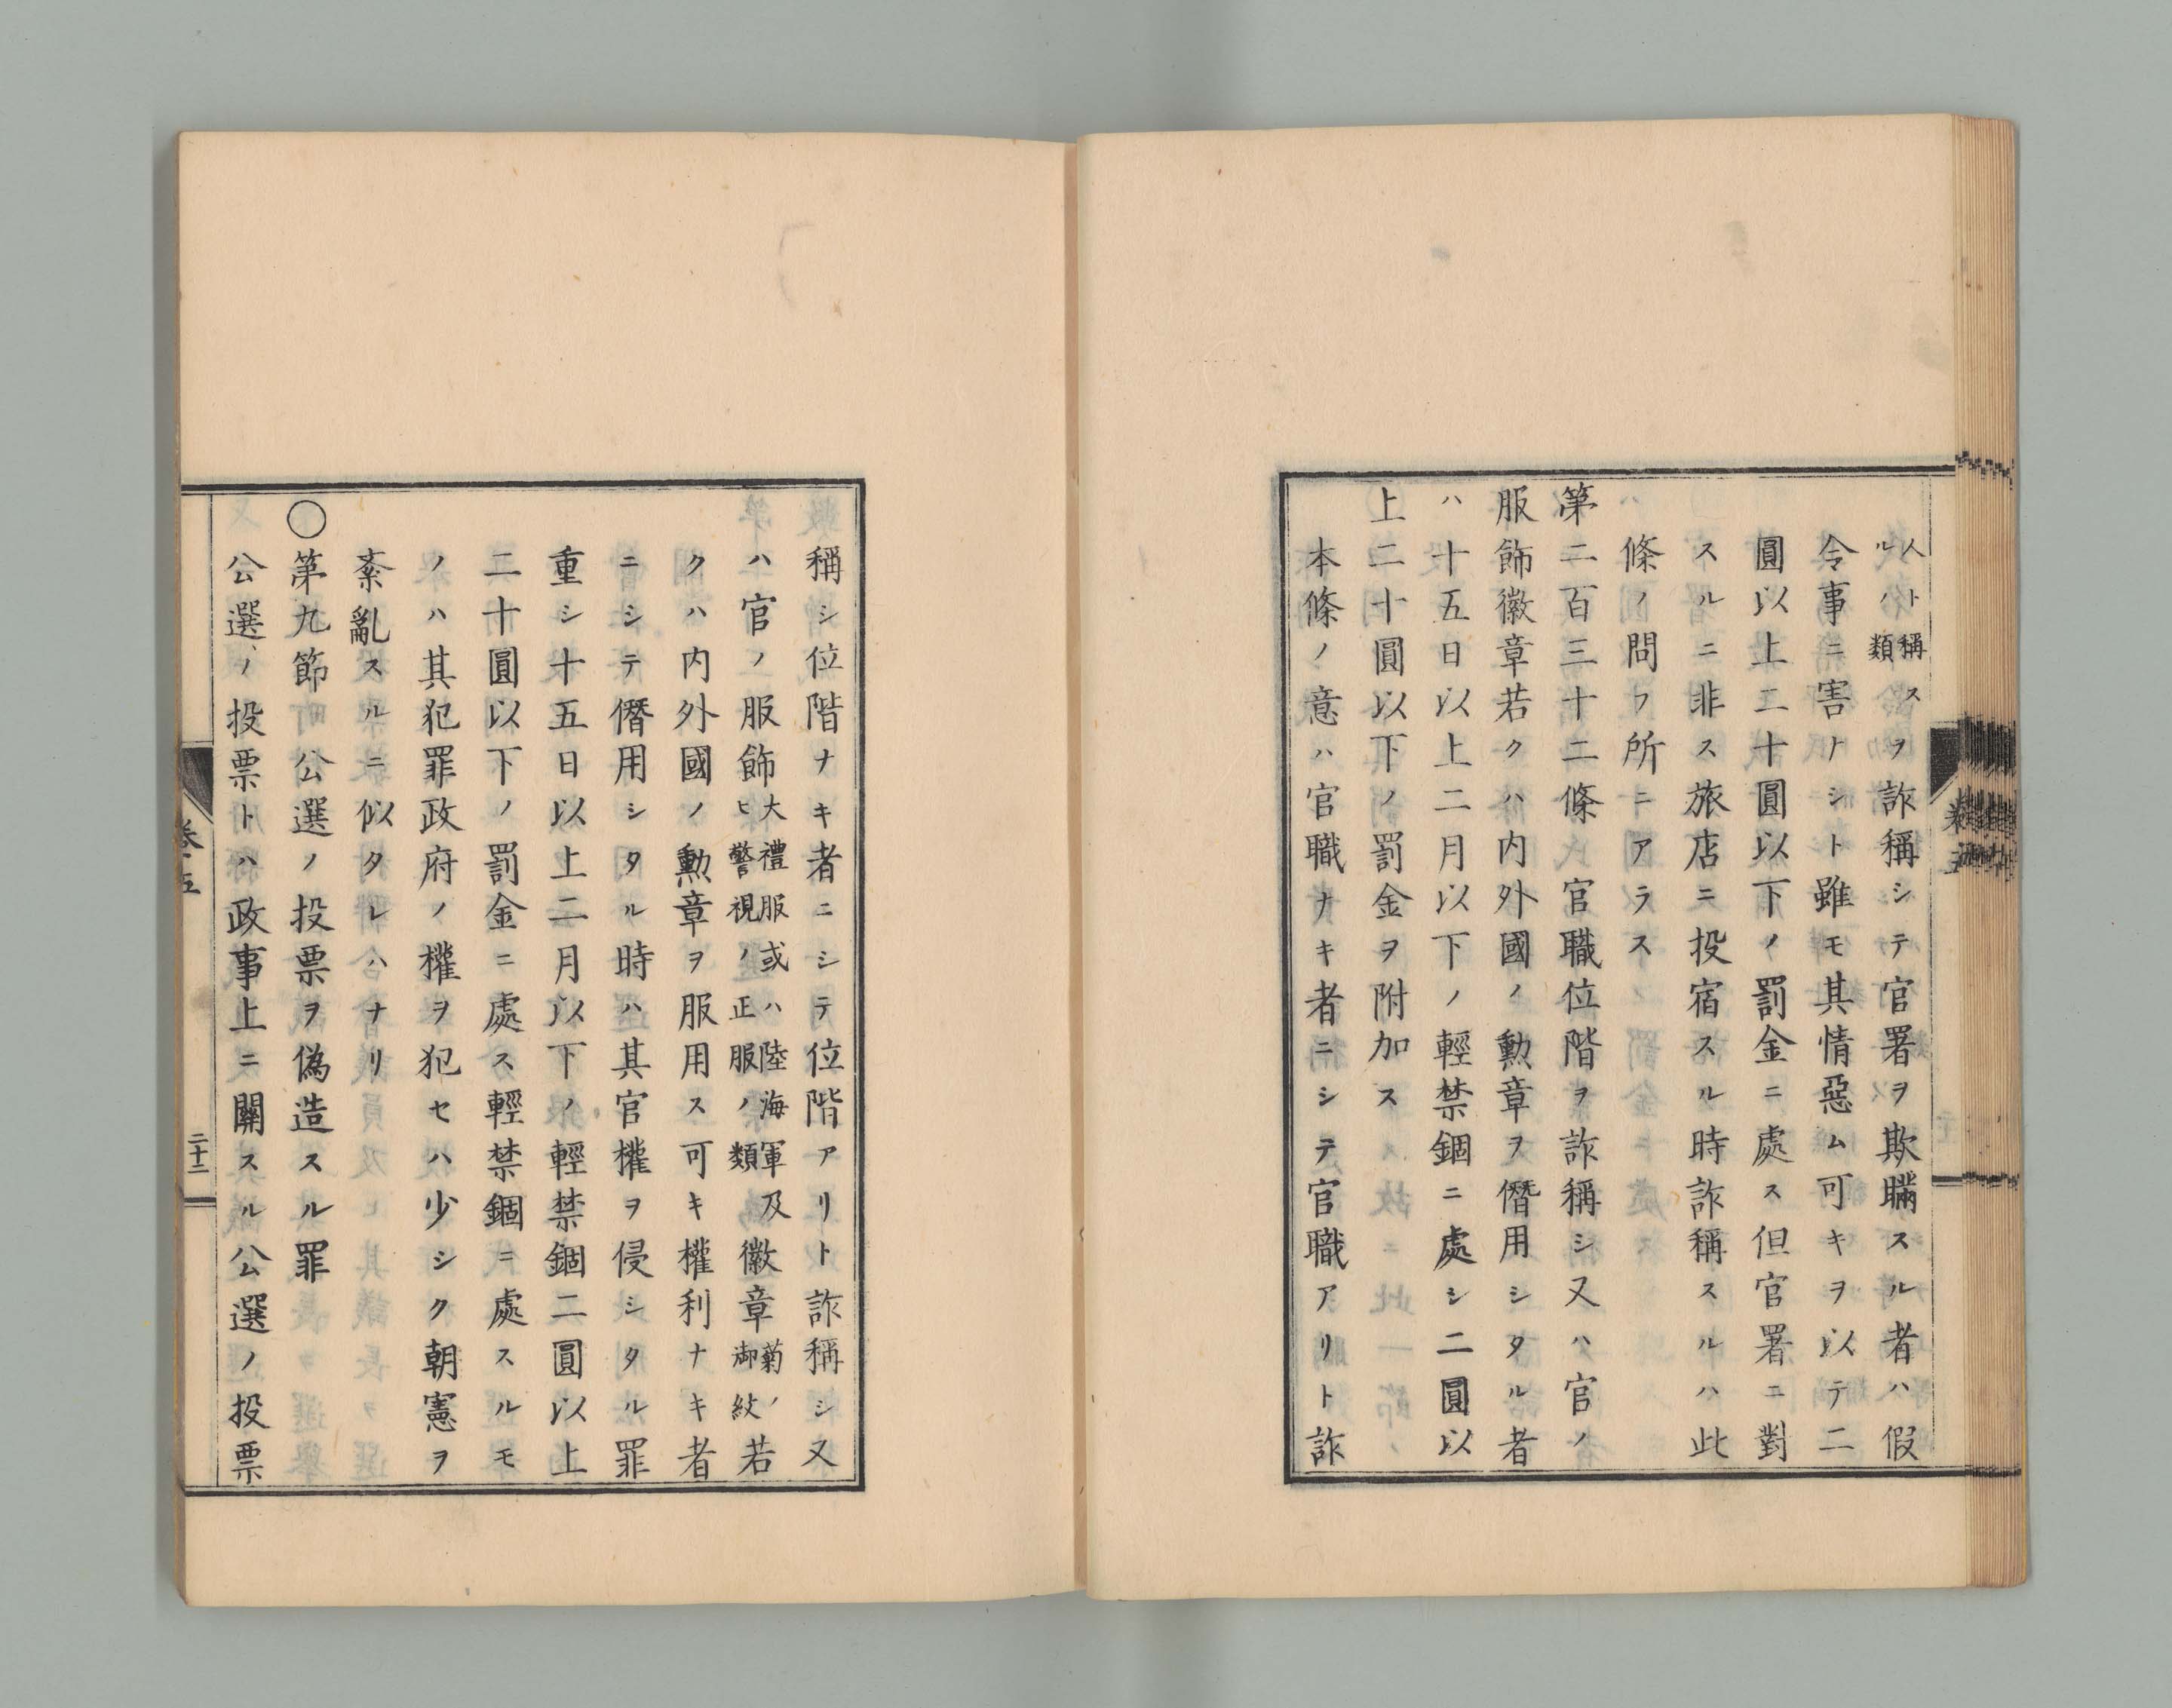 人ト稱スルハ類ヲ詐稱シテ官署ヲ欺瞞スル者ハ假
令事ニ害ナシト雖モ其情惡ム可キヲ以テ二
圓以上二十圓以下ノ罰金ニ處ス但官署ニ對
スルニ非ス旅店ニ投宿スル時詐稱スルハ此
條ノ問フ所ニアラス
第二百三十二條 官職位階ヲ詐稱シ又ハ官ノ
服飾徽章若クハ内外國ノ勳章ヲ僭用シタル者
ハ十五日以上二月以下ノ輕禁錮ニ處シ二圓以
上二十圓以下ノ罰金ヲ附加ス
本條ノ意ハ官職ナキ者ニシテ官職アリト詐
稱シ位階ナキ者ニシテ位階アリト詐稱シ又
ハ官ノ服飾大禮服或ハ陸海軍及ヒ警視ノ正服ノ類徽章菊ノ御紋若
クハ内外國ノ勳章ヲ服用ス可キ權利ナキ者
ニシテ僭用シタル時ハ其官權ヲ侵シタル罪
重シ十五日以上二月以下ノ輕禁錮二圓以上
二十圓以下ノ罰金ニ處ス輕禁錮ニ處スルモ
ノハ其犯罪政府ノ權ヲ犯セハ少シク朝憲ヲ
紊亂スルニ似タレハナリ
○第九節 公選ノ投票ヲ偽造スル罪
公選ノ投票トハ政事上ニ關スル公選ノ投票
卷五
二十二